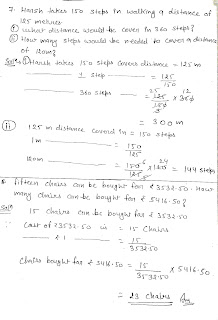 7. Harsh takes 150 steps in walking a distance of
125 metres
① What distance would be cover in 360 steps?
② How many steps would be needed to cover a distance
of 120m?
Solⁿ ① Harsh takes 150 steps covers distance = 125 m
1 step = 125/150
360 steps = 125/150 × 360
= 300 m
(ii) 125 m distance covered in = 150 steps
1m = 150/125
120m = 150/125 × 120 = 144 steps
8. fifteen chairs can be bought for ₹ 3532.50. How
many chairs can be bought for ₹ 5416.50?
Solⁿ 15 Chairs can be bought for ₹ 3532.50
Cost of ₹3532.50 is = 15 Chairs
₹ 1 = 15/3532.50
Chairs bought for ₹ 5416.50 = 15/3532.50 × 5416.50
= 23 chairs Ans